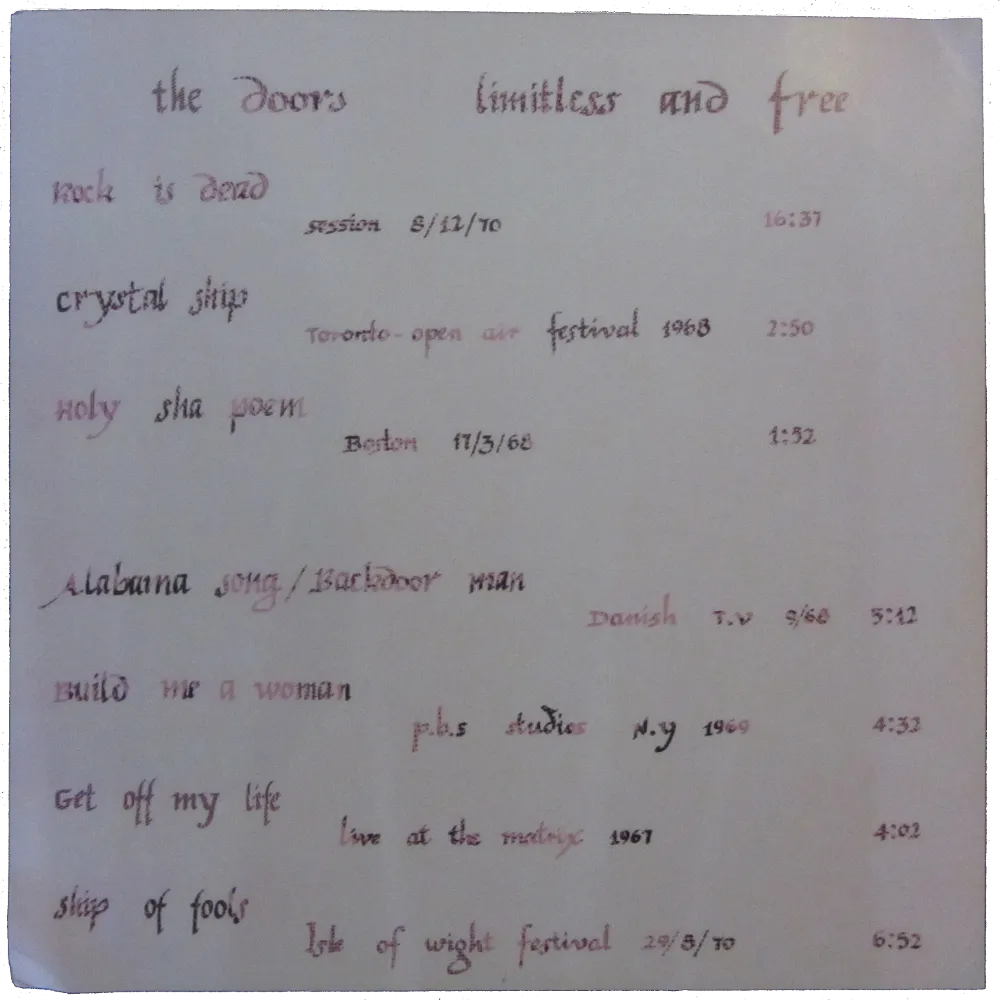 the doors limitless and free
Rock is dead
session 8/12/70 16:37
crystal ship
Toronto - open air festival 1968 2:50
Holy sha poem
Boston 17/3/68 1:52
Alabama song / Backdoor man
Danish T.V 9/68 5:12
Build me a woman
p.b.s studios N.y 1969 4:32
Get off my life
live at the matrix 1967 4:02
ship of fools
Isle of wight festival 29/8/70 6:52